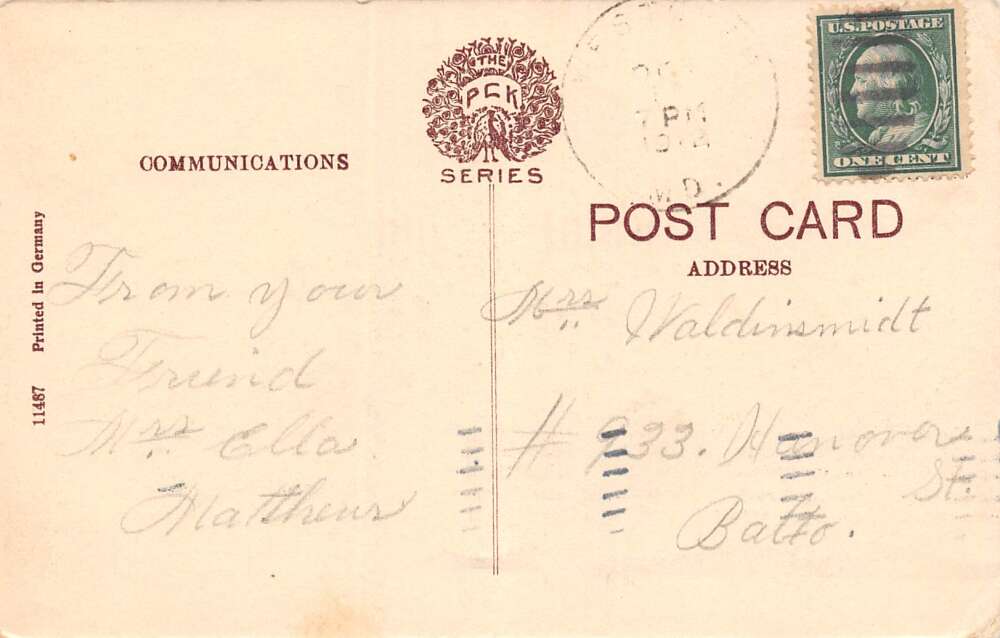 COMMUNICATIONS
THE
PCK
SERIES
7 PM
1912
MD.
U.S. POSTAGE
ONE CENT
POST CARD
ADDRESS
11487 Printed in Germany
From your
Freind
Mrs Ella
Matthews
Mrs Waldinsmidt
# 933. Hanover
St.
Balto.